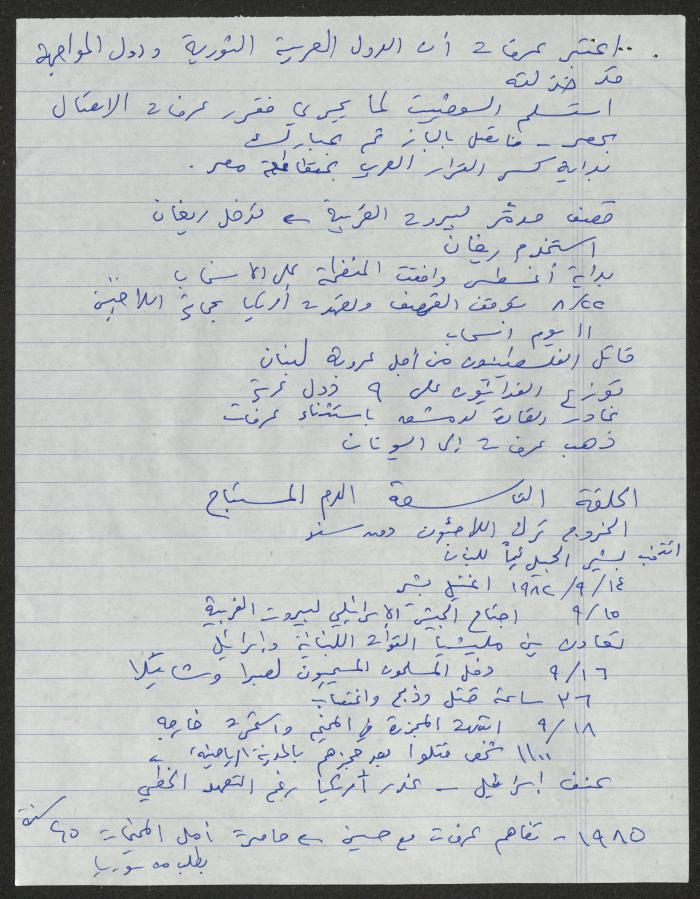 .. اعتبر عرفات أن الدول العربية الثورية ودول المواجهة
قد خذلته
استسلم السوفييت لما يجري فقرر عرفات الاتصال
بمصر - فاتصل بالباز ثم بمبارك
بداية كسر القرار العربي بمقاطعة مصر .
قصف مدمر لبيروت الغربية ← تدخل ريغان
استخدم ريغان
بداية أغسطس وافقت المنظمة على الانسحاب
٨/٢٢ توقف القصف وتعهدت أمريكا بحماية اللاجئين
١١ يوم انسحاب
قاتل الفلسطينيون من أجل عروبة لبنان
توزع الفدائيون على ٩ دول عربية
غادر القادة لدمشق باستثناء عرفات
ذهب عرفات إلى اليونان
الحلقة التاسعة الدم المستباح
الخروج ترك اللاجئون دون سند
انتخب بشير الجميل رئيساً للبنان
١٩٨٢/٩/١٤ اغتيل بشير
٩/١٥ اجتاح الجيش الإسرائيلي لبيروت الغربية
تعاون بين مليشيا القوات اللبنانية وإسرائيل
٩/١٦ دخل المسلحون المسيحيون لصبرا وشاتيلا
٣٦ ساعة قتل وذبح واغتصاب
٩/١٨ انتهت المجزرة في المخيم واستمرت خارجه
١١٠٠ شخص قتلوا بعد حجزهم بالمدينة الرياضية
عنف إسرائيل - غدر أمريكا رغم التعهد الخطي
١٩٨٥ - تفاهم عرفات مع حسين ← محاصرة أمل المخيمات سنة
بطلب من سوريا